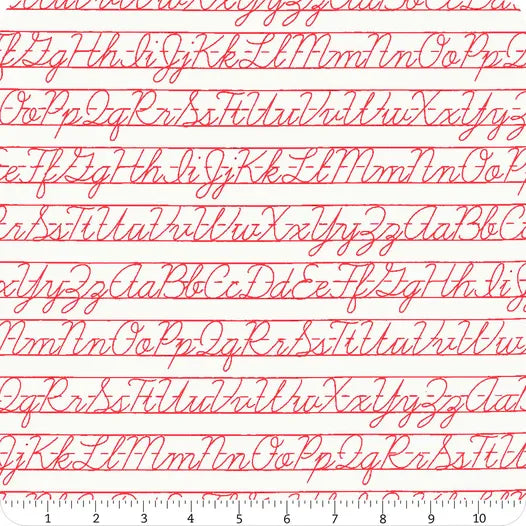 VvWwXxYyZzAaBbCcDd
fGgHhIiJjKkLlMmNnOoPpQ
OoPpQqRrSsTtUuVvWwXxYyZ
eFfGgHhIiJjKkLlMmNnOoP
rRrSsTtUuVvWwXxYyZzAaBbC
xYyZzAaBbCcDdEeFfGgHhIiJ
NmNnOoPpQqRrSsTtUuVvWw
QqRrSsTtUuVvWwXxYyZzAa
JjKkLlMmNnOoPpQqRrSsTtU
1 2 3 4 5 6 7 8 9 10